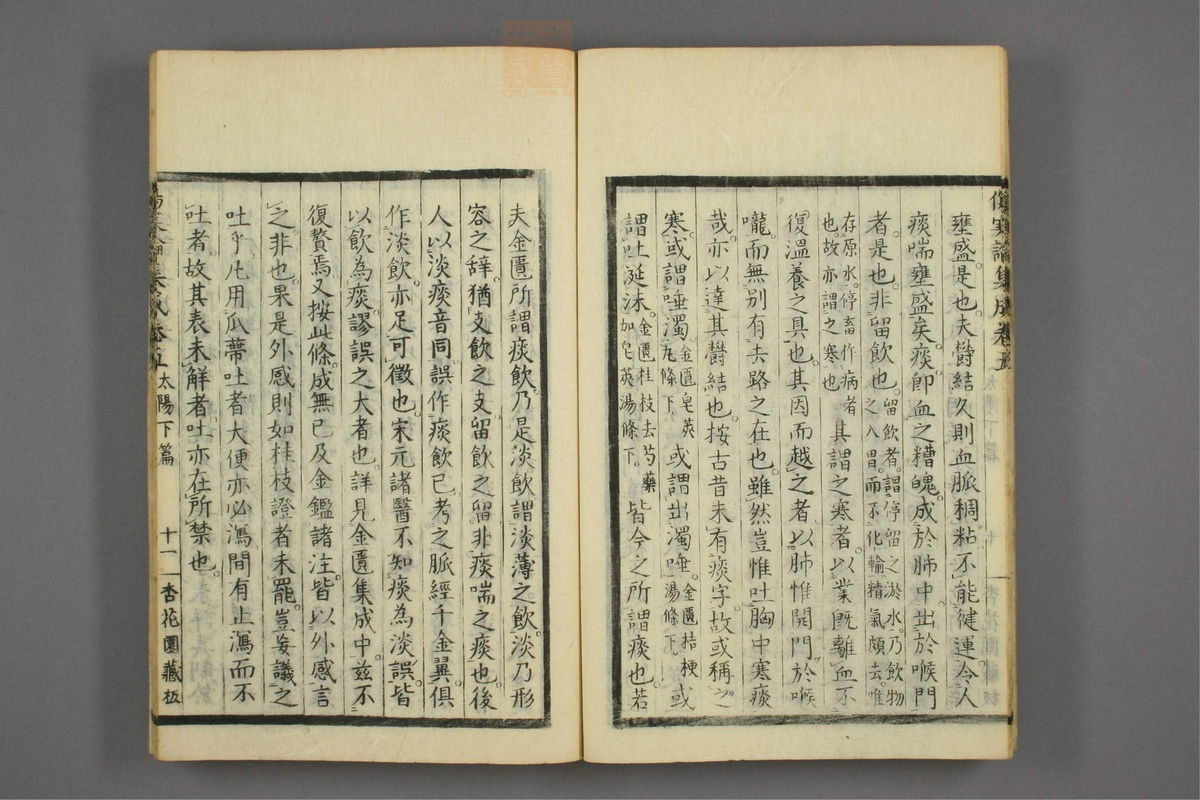 傷寒論集成卷五
壅盛是也夫欝結久則血脈稠粘不能健運令人
痰喘壅盛矣痰卽血之糟魄成於肺中出於喉門
者是也非留飲也留飲者謂停留之淤水乃飲物
之入胃而不化輸精氣頗去唯
存原水停畜作病者
也故亦謂之寒也
其謂之寒者以業既離血不
復溫養之具也其因而越之者以肺惟開門於喉
嚨而無別有去路之在也雖然豈惟吐胸中寒痰
哉亦以達其欝結也按古昔未有痰字故或稱之
寒或謂唾濁金匱皂莢
丸條下
或謂出濁唾金匱桔梗
湯條下
或
謂吐涎沫金匱桂枝去芍藥
加皂莢湯條下
皆今之所謂痰也若
夫金匱所謂痰飲乃是淡飲謂淡薄之飲淡乃形
容之辭猶支飲之支留飲之留非痰喘之痰也後
人以淡痰音同誤作痰飲已考之脈經千金翼俱
作淡飲亦足可徵也宋元諸醫不知痰為淡誤皆
以飲為痰謬誤之大者也詳見金匱集成中茲不
復贅焉又按此條成無已及金鑑諸注皆以外感言
之非也果是外感則如桂枝證者未罷豈妄議之
吐乎凡用瓜蔕吐者大便亦必瀉間有止瀉而不
吐者故其表未解者吐亦在所禁也
太陽下篇
十一
杏花園藏板